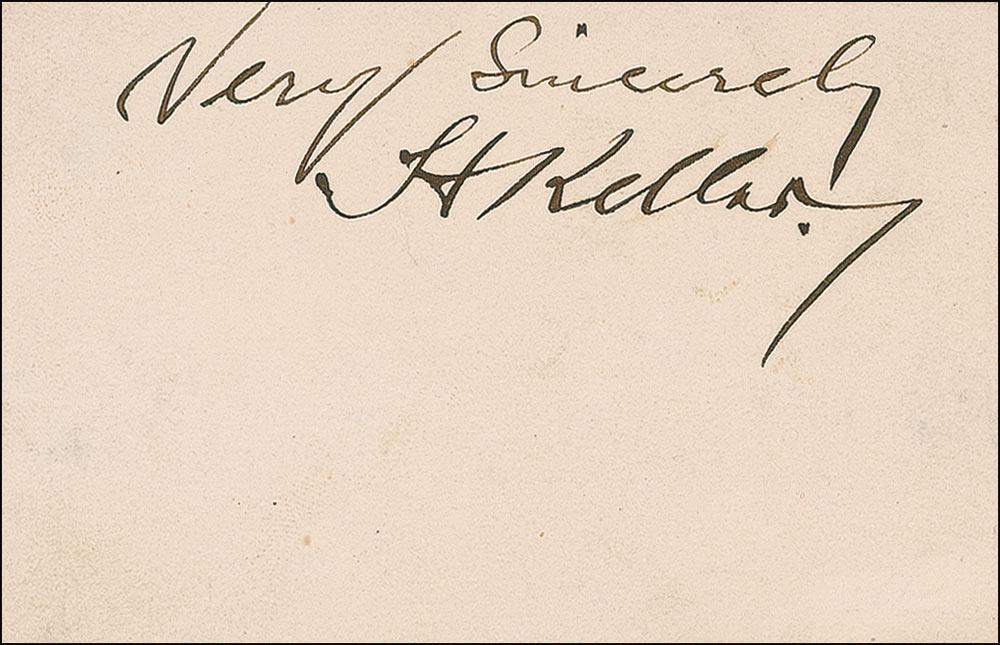 Very Sincerely
H Kellar.